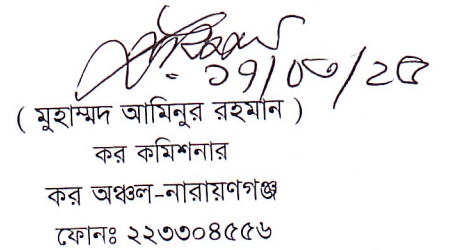 ১৭/০৩/২৫
( মুহাম্মদ আমিনুর রহমান )
কর কমিশনার
কর অঞ্চল-নারায়ণগঞ্জ
ফোনঃ ২২৩৩০৪৫৫৬